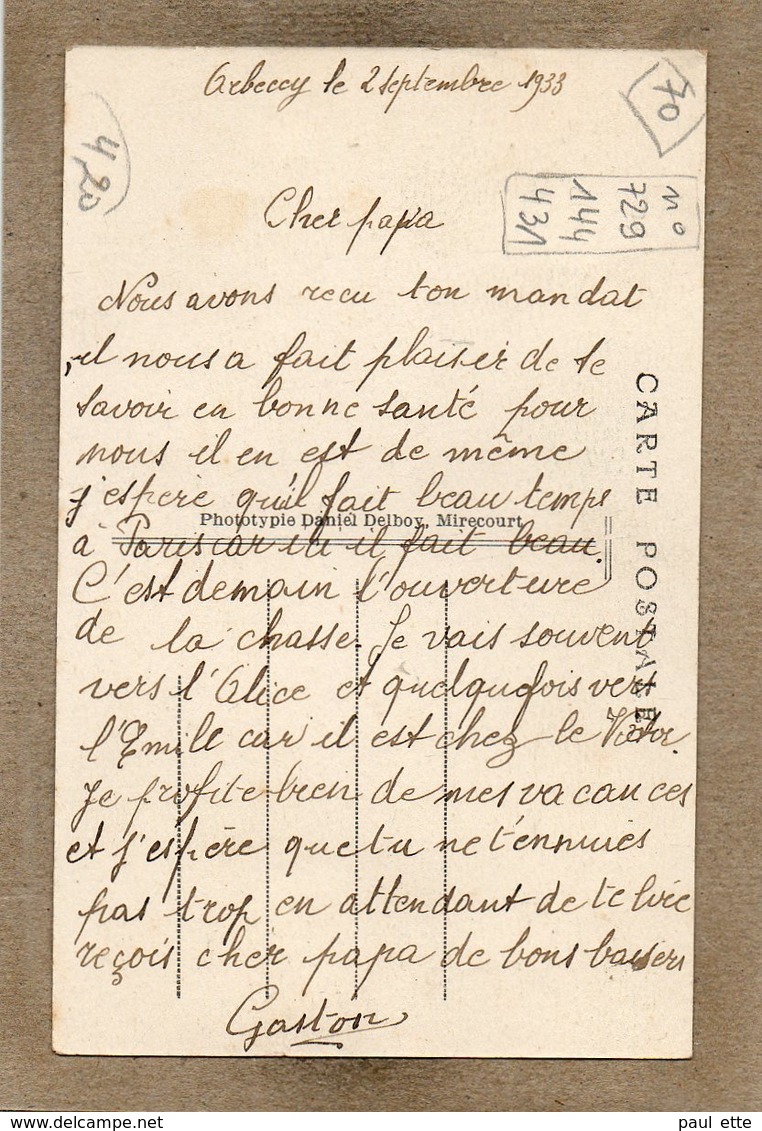 Orbeccy le 2 septembre 1933
70
4,20
n°
729
144
431
Cher papa
Nous avons recu ton mandat
il nous a fait plaisir de te
savoir en bonne santé pour
nous il en est de même
j'espere qu'il fait beau temps
Phototypie Daniel Delboy, Mirecourt
a Paris car ici il fait beau.
C'est demain l'ouverture
de la chasse. Je vais souvent
vers l'Alice et quelquefois vers
l'Emile car il est chez le Victor.
Je profite bien de mes vacances
et j'espère que tu ne t'ennuies
pas trop en attendant de te lire
reçois cher papa de bons baisers
Gaston
CARTE POSTALE
paul ette